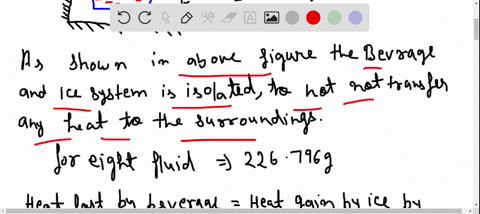 As shown in above figure the Bevrage
and Ice system is isolated, to not not transfer
any heat to the surroundings.
for eight fluid ⇒ 226.796g
Heat lost by beverage = Heat gain by ice by